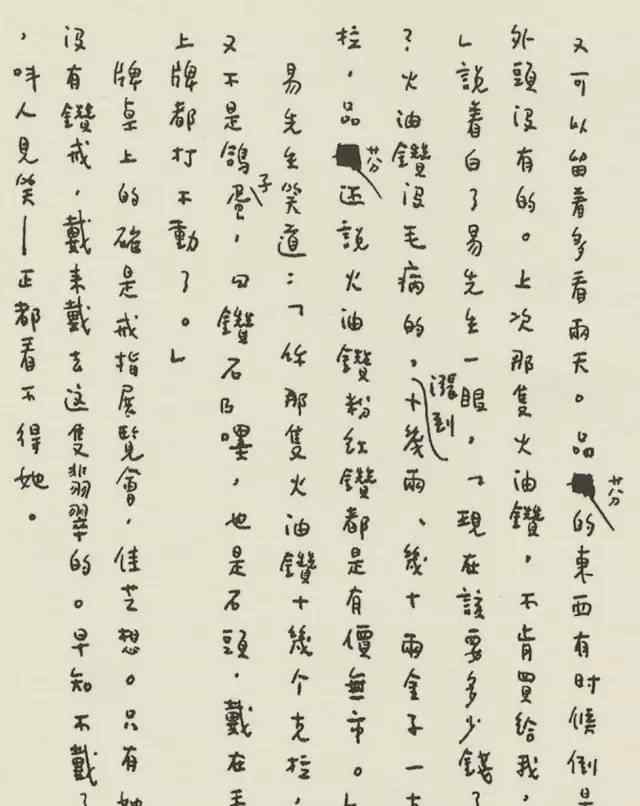 又可以留着多看兩天。品芬的東西有时候倒是
外頭没有的。上次那隻火油鑽,不肯買給我,
」說着白了易先生一眼,「現在該要多少錢了
?火油鑽没毛病的,漲到十幾兩、幾十兩金子一克
拉,品芬还說火油鑽粉紅鑽都是有價無市。」
易先生笑道:「你那隻火油鑽十幾个克拉,
又不是鴿子蛋,『鑽石』嚜,也是石頭,戴在手
上牌都打不動了。」
牌桌上的確是戒指展覽會,佳芝想。只有她
没有鑽戒,戴來戴去这隻翡翠的。早知不戴了
,叫人見笑—正都看不得她。